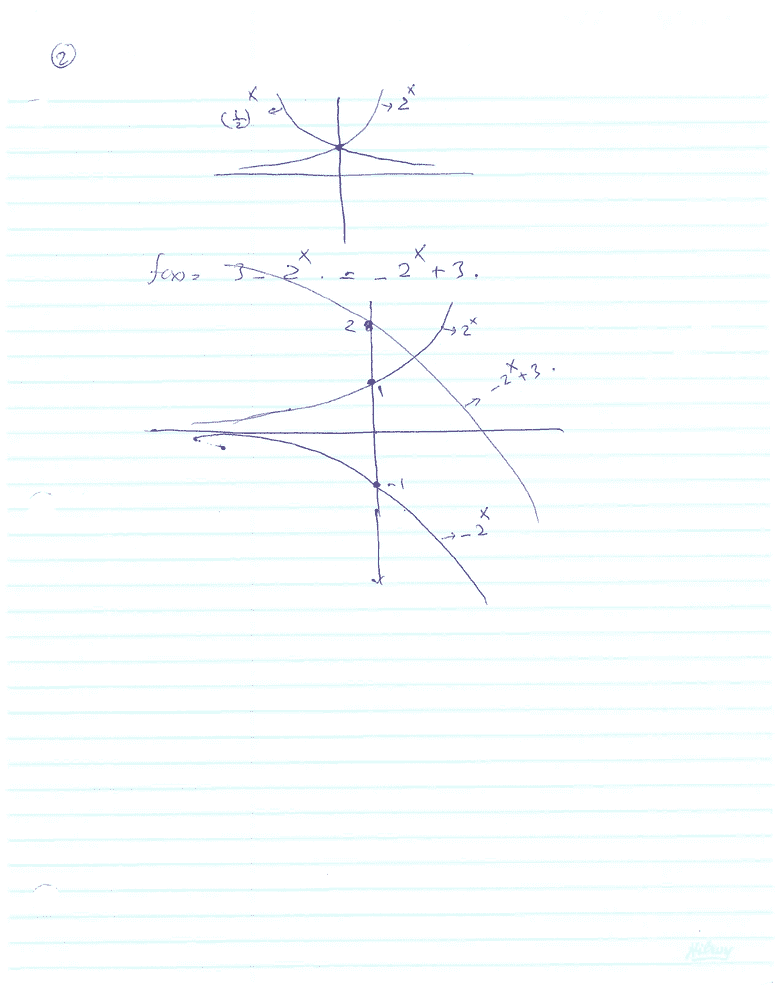 ②
(1/2)^x ← → 2^x
f(x) = 3 - 2^x . = - 2^x + 3 .
2 → 2^x
1 → -2^x + 3 .
-1
→ - 2^x
Hilroy